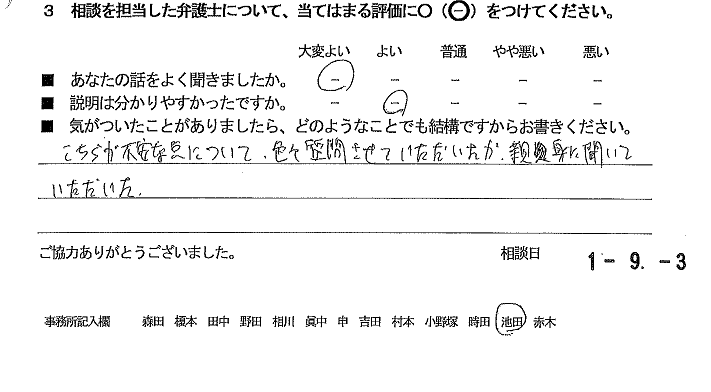 3 相談を担当した弁護士について、当てはまる評価に○（⊖）をつけてください。
大変よい よい 普通 やや悪い 悪い
■ あなたの話をよく聞きましたか。 － － － － －
■ 説明は分かりやすかったですか。 － － － － －
■ 気がついたことがありましたら、どのようなことでも結構ですからお書きください。
こちらが不安な点について、色々質問させていただいたが、親身に聞いて
いただいた。
ご協力ありがとうございました。 相談日 1－9.－3
事務所記入欄 森田 榎本 田中 野田 相川 眞中 申 吉田 村本 小野塚 時田 池田 赤木